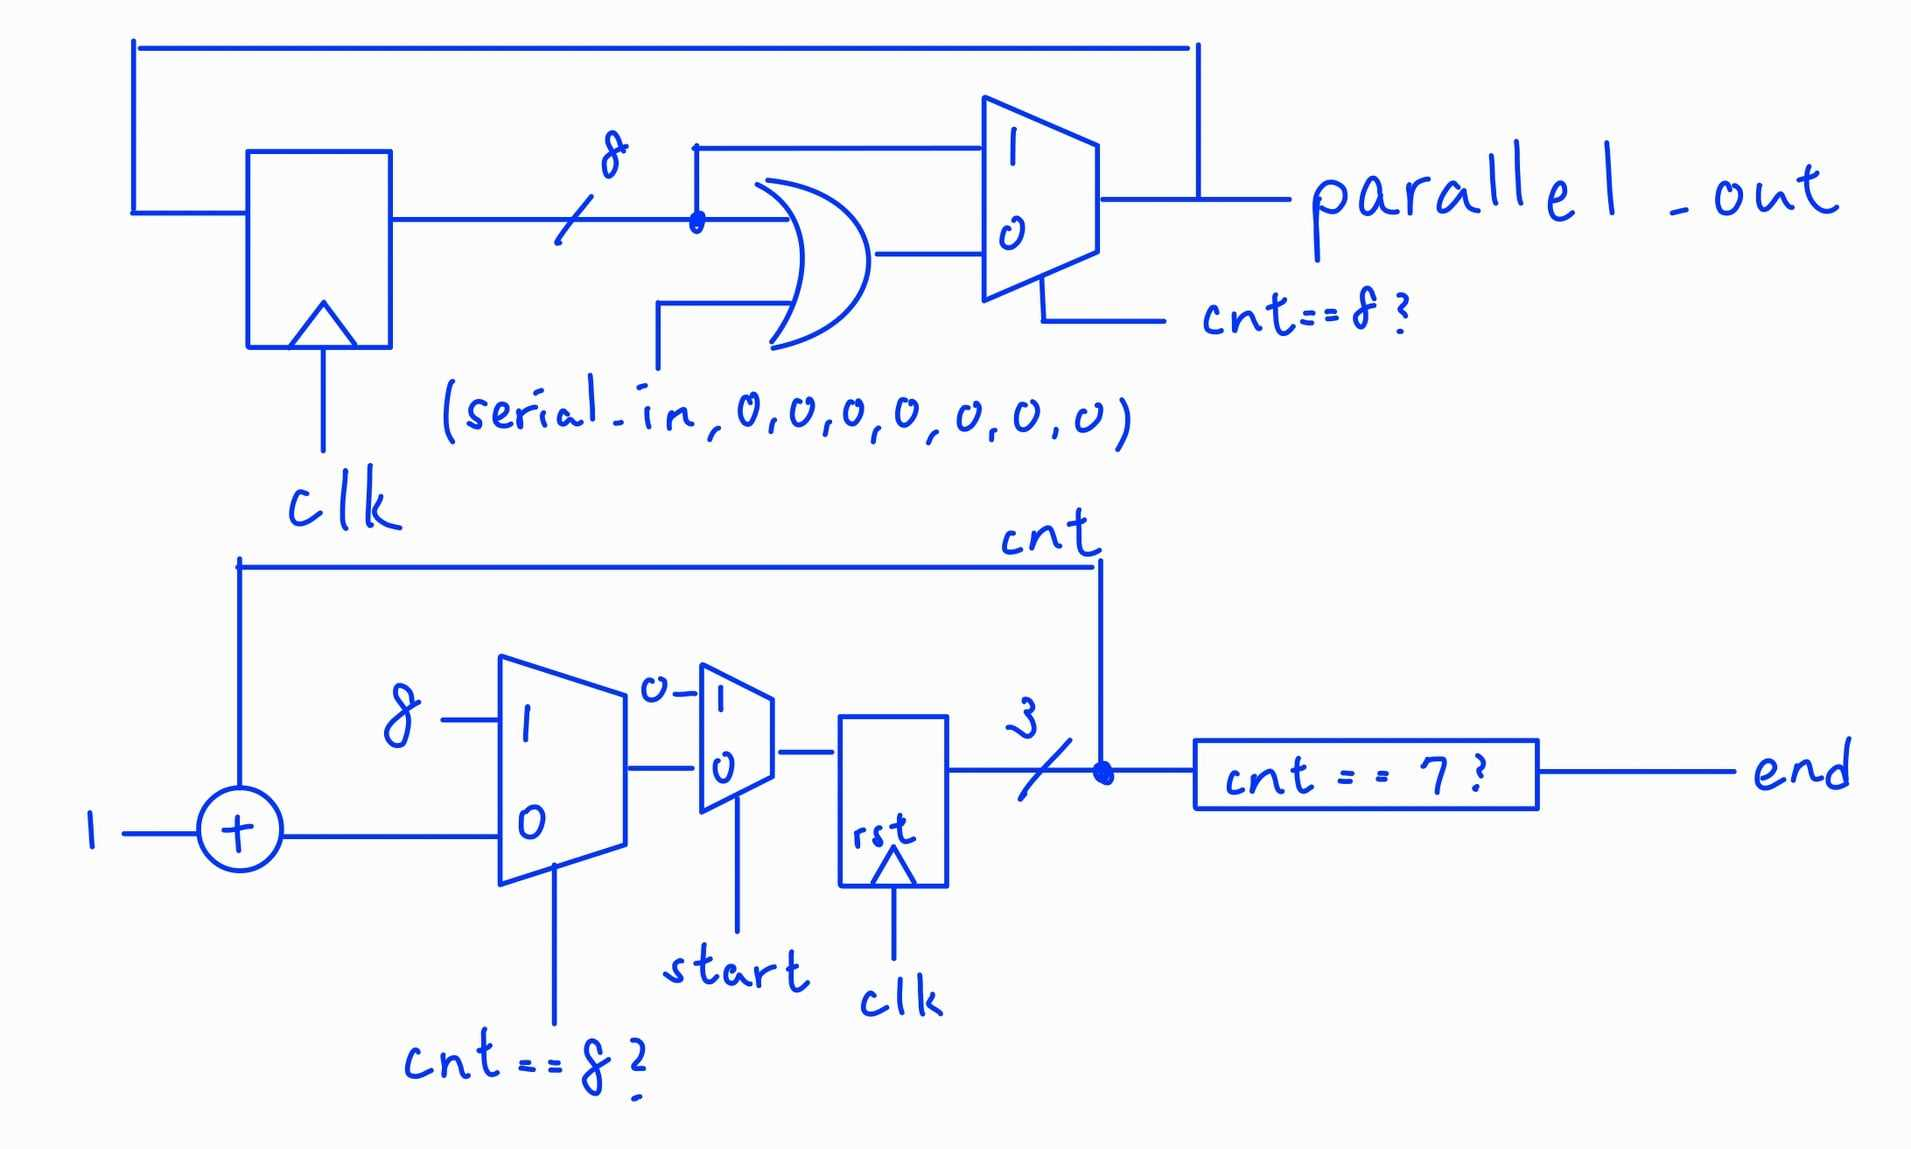 8
1
0
parallel_out
cnt==8?
(serial_in,0,0,0,0,0,0,0)
clk
cnt
8
1
0
0
1
0
3
cnt == 7?
end
1
+
rst
start
clk
cnt==8?